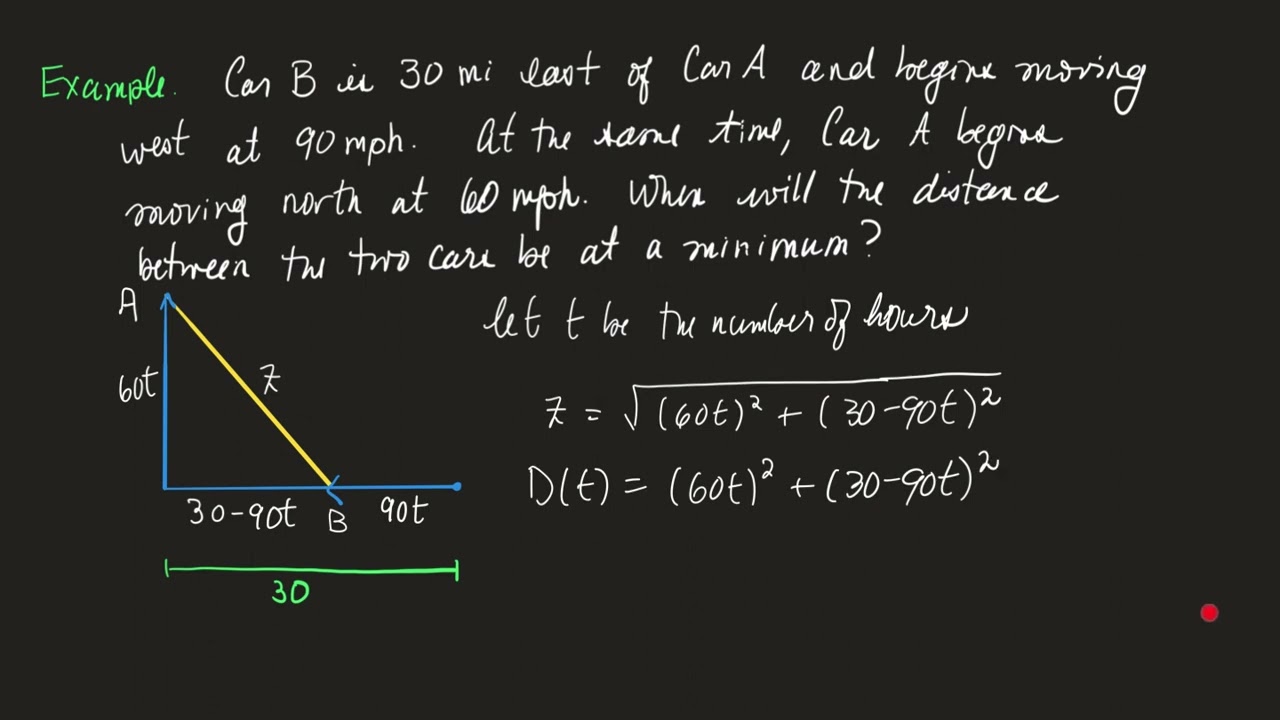 Example. Car B is 30 mi east of Car A and begins moving
west at 90 mph. At the same time, Car A begins
moving north at 60 mph. When will the distance
between the two cars be at a minimum?
A
let t be the number of hours
60t
z
z = √(60t)² + (30-90t)²
D(t) = (60t)² + (30-90t)²
30-90t B 90t
30